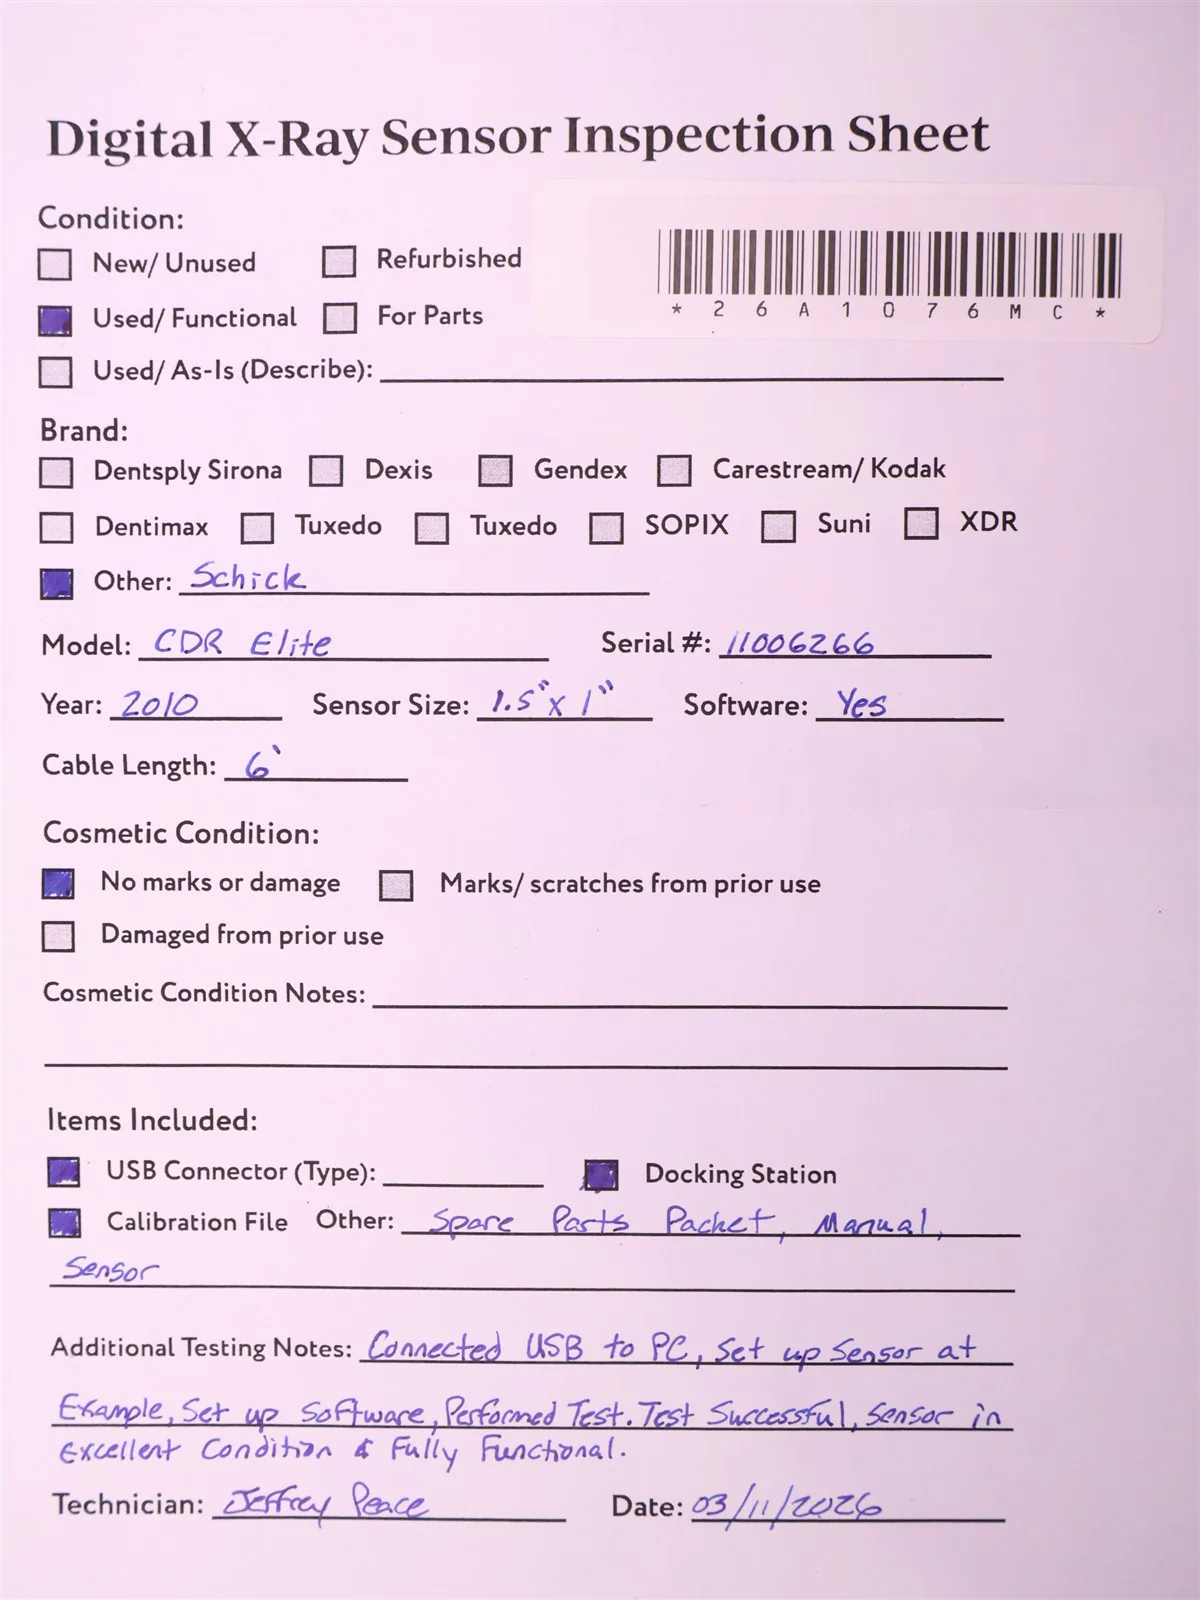 Digital X-Ray Sensor Inspection Sheet
Condition:
New/ Unused Refurbished
*26A1076MC*
Used/ Functional For Parts
Used/ As-Is (Describe):
Brand:
Dentsply Sirona Dexis Gendex Carestream/ Kodak
Dentimax Tuxedo Tuxedo SOPIX Suni XDR
Other: Schick
Model: CDR Elite Serial #: 11006266
Year: 2010 Sensor Size: 1.5"x 1" Software: Yes
Cable Length: 6'
Cosmetic Condition:
No marks or damage Marks/ scratches from prior use
Damaged from prior use
Cosmetic Condition Notes:
Items Included:
USB Connector (Type): Docking Station
Calibration File Other: Spare Parts Packet, Manual,
Sensor
Additional Testing Notes: Connected USB to PC, Set up Sensor at
Example, Set up Software, Performed Test. Test Successful, Sensor in
excellent Condition & Fully Functional.
Technician: Jeffrey Peace Date: 03/11/2026